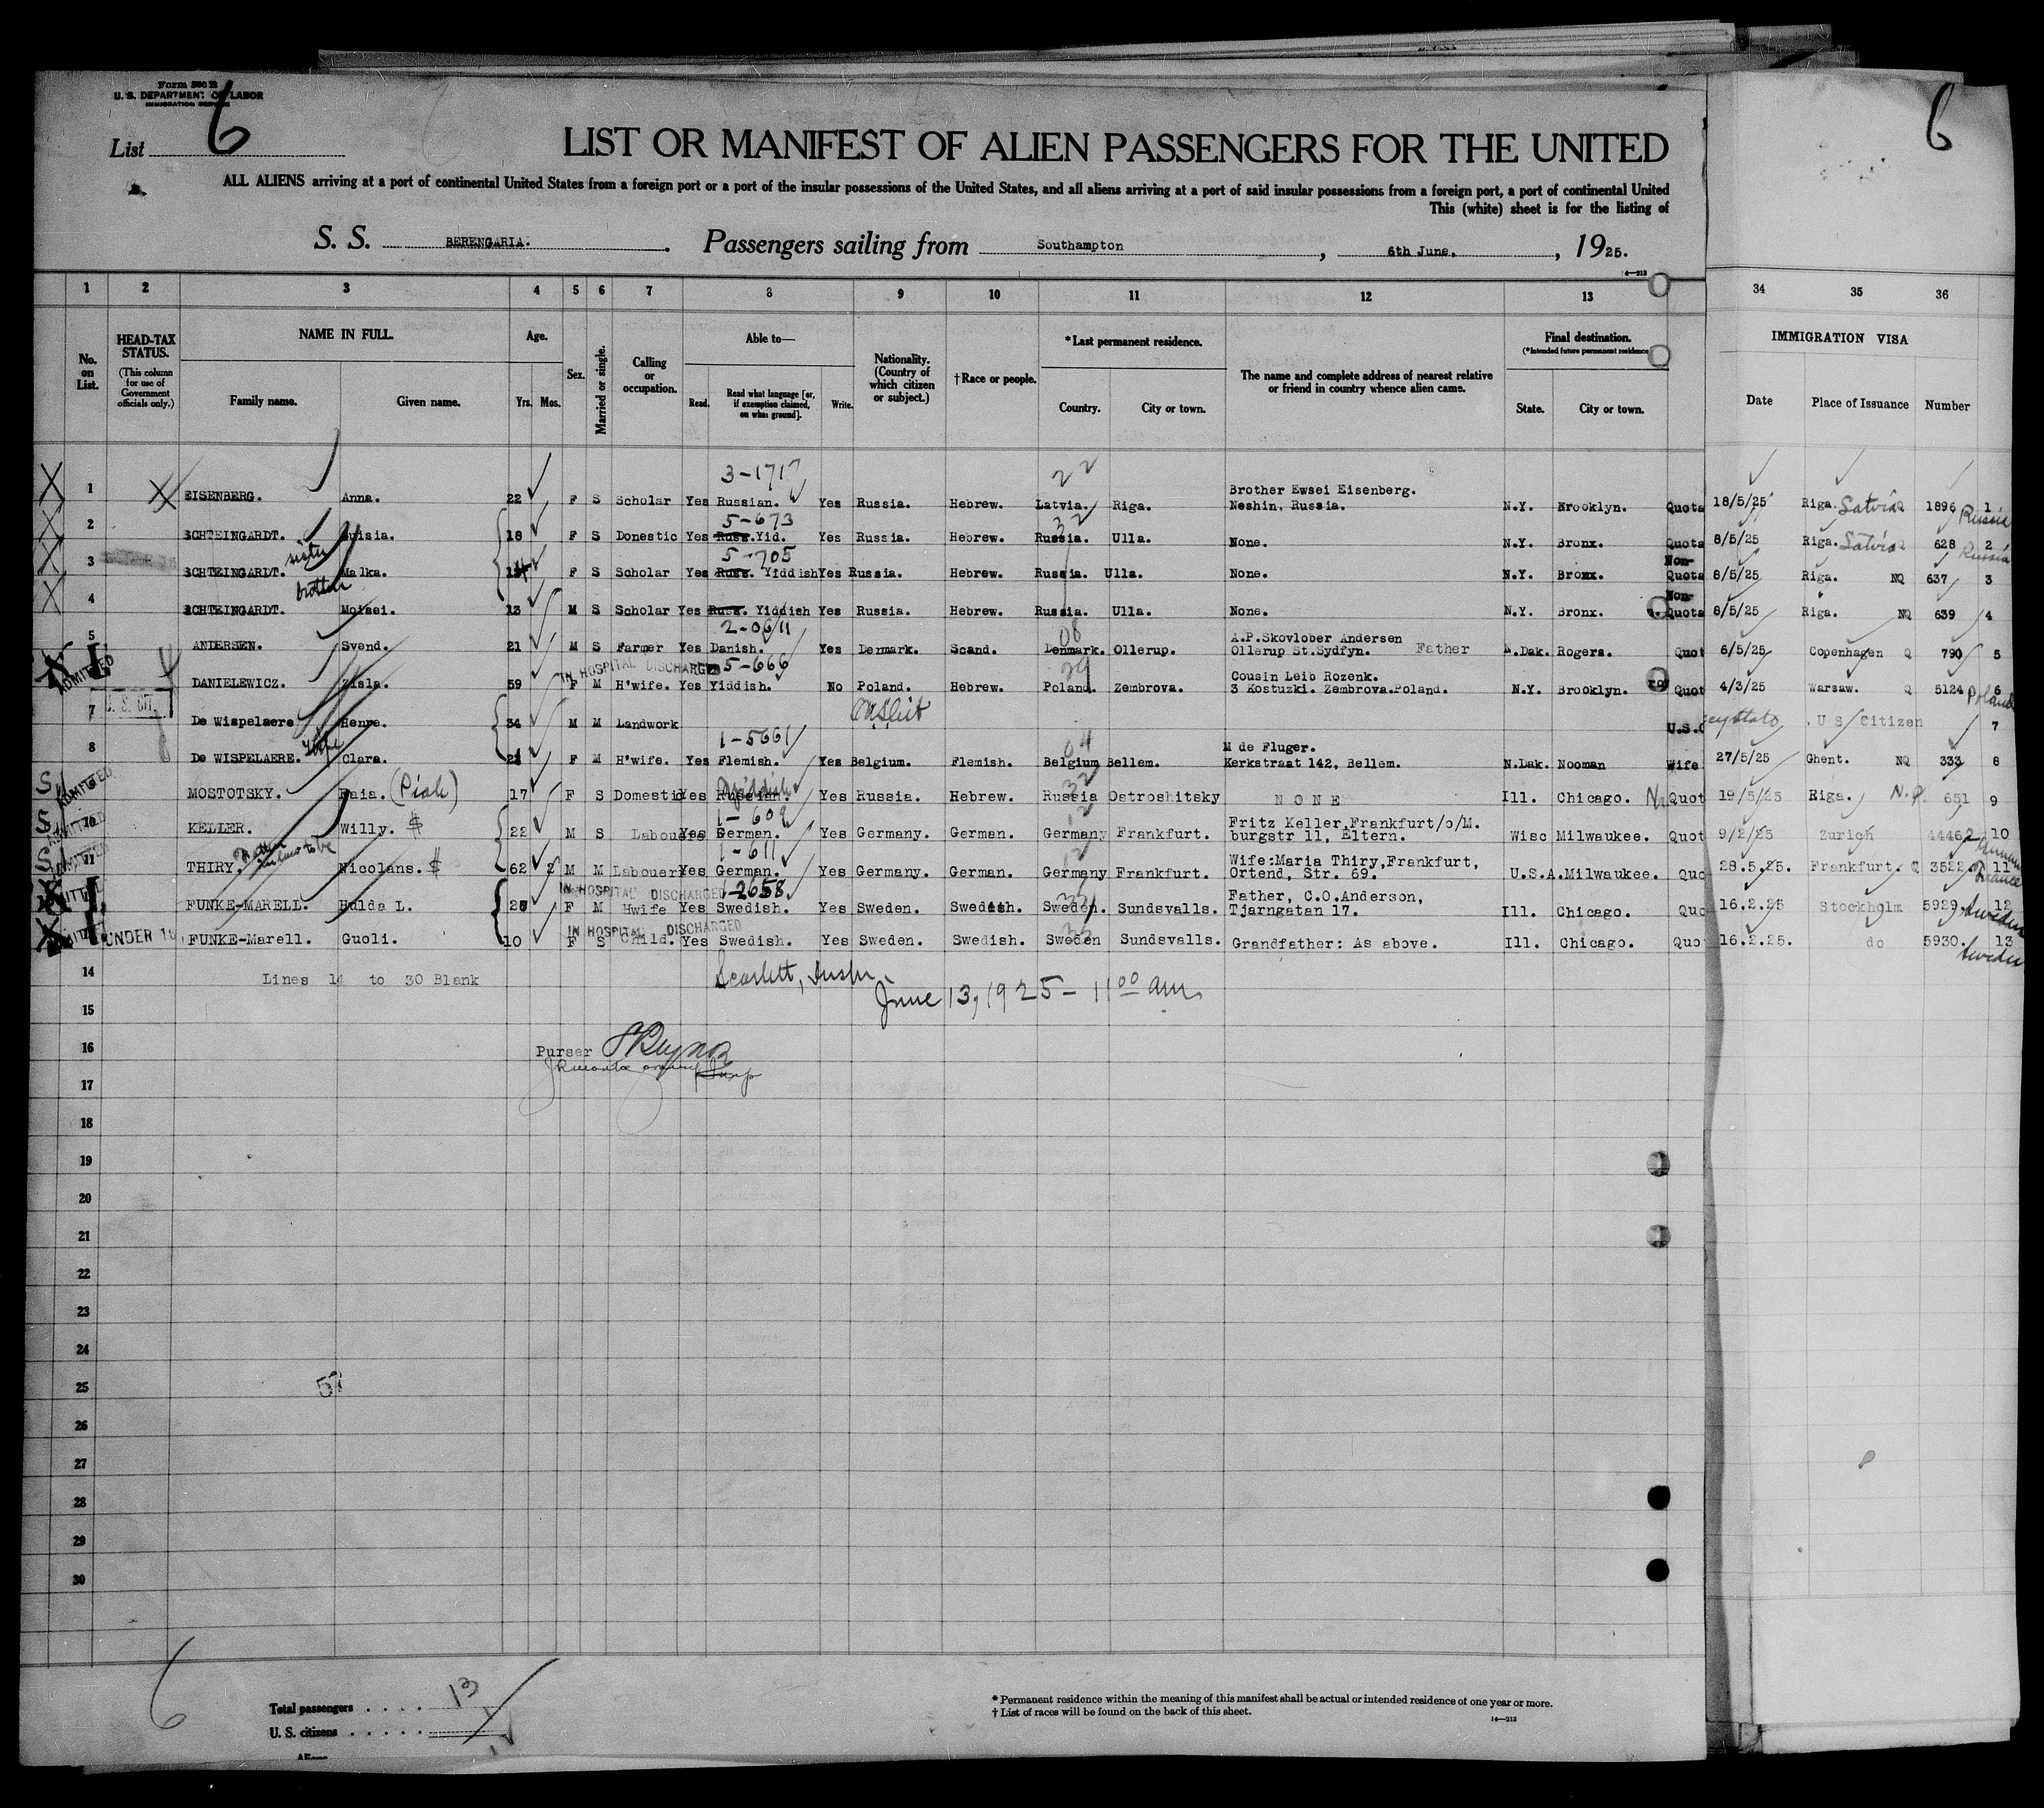 Form 500 B
U. S. DEPARTMENT OF LABOR
IMMIGRATION SERVICE
List 6
6
LIST OR MANIFEST OF ALIEN PASSENGERS FOR THE UNITED
ALL ALIENS arriving at a port of continental United States from a foreign port or a port of the insular possessions of the United States, and all aliens arriving at a port of said insular possessions from a foreign port, a port of continental United
This (white) sheet is for the listing of
S. S. BERENGARIA. Passengers sailing from Southampton, 6th June, 1925.
1 2 3 4 5 6 7 8 9 10 11 12 13 34 35 36
No. on List. HEAD-TAX STATUS. (This column for use of Government officials only.) NAME IN FULL. Family name. Given name. Age. Yrs. Mos. Sex. Married or single. Calling or occupation. Able to— Read. Read what language [or, if exemption claimed, on what ground]. Write. Nationality. (Country of which citizen or subject.) †Race or people. *Last permanent residence. Country. City or town. The name and complete address of nearest relative or friend in country whence alien came. Final destination. (*Intended future permanent residence State. City or town. IMMIGRATION VISA Date Place of Issuance Number
3-1717 22
1 EISENBERG. Anna. 22 F S Scholar Yes Russian. Yes Russia. Hebrew. Latvia. Riga. Brother Ewsei Eisenberg. Neshin, Russia. N.Y. Brooklyn. Quota 18/5/25 Riga. Latvia 1896 1 Russia
5-673 32
2 SCHTEINGARDT. 18 F S Domestic Yes Russ. Yid. Yes Russia. Hebrew. Russia. Ulla. None. N.Y. Bronx. Quota 8/5/25 Riga. Latvia 628 2 Russia
sister 5-705
3 SCHTEINGARDT. Malka. F S Scholar Yes Russ. Yiddish Yes Russia. Hebrew. Russia. Ulla. None. N.Y. Bronx. Non-Quota 8/5/25 Riga. NQ 637 3
brother
4 SCHTEINGARDT. Moisei. 13 M S Scholar Yes Russ. Yiddish Yes Russia. Hebrew. Russia. Ulla. None. N.Y. Bronx. Non-Quota 8/5/25 Riga. NQ 639 4
2-0611 08
5 ANDERSEN. Svend. 21 M S Farmer Yes Danish. Yes Denmark. Scand. Denmark. Ollerup. A.P.Skovlober Andersen Ollerup St.Sydfyn. Father N.Dak. Rogers. Quot 6/5/25 Copenhagen Q 790 5
ADMITTED IN HOSPITAL DISCHARGED 5-666 29
DANIELEWICZ. Zisla. 59 F M H'wife. Yes Yiddish. No Poland. Hebrew. Poland. Zembrova. Cousin Leib Rozenk. 3 Kostuzki. Zembrova.Poland. N.Y. Brooklyn. Quot 4/3/25 Warsaw. Q 5124 6 Poland
7 De Wispelaere Henre. 34 M M Landwork U.S.C U S Citizen 7
wife 1-5661 04
8 De WISPELAERE. Clara. F M H'wife. Yes Flemish. Yes Belgium. Flemish. Belgium Bellem. M de Fluger. Kerkstraat 142, Bellem. N.Dak. Nooman Wife 27/5/25 Ghent. NQ 333 8
S ADMITTED Yiddish 32
MOSTOTSKY. Raia. 17 F S Domestic Yes Russian. Yes Russia. Hebrew. Russia Ostroshitsky NONE Ill. Chicago. Quot 19/5/25 Riga. N.Q. 651 9
S ADMITTED 1-609
10 KELLER. Willy. $ 22 M S Labouer Yes German. Yes Germany. German. Germany Frankfurt. Fritz Keller,Frankfurt/o/M. burgstr 11, Eltern. Wisc Milwaukee. Quot 9/2/25 Zurich 44462 10
S ADMITTED 1-611 12
11 THIRY. Nicolans. $ 62 M M Labouer Yes German. Yes Germany. German. Germany Frankfurt. Wife:Maria Thiry,Frankfurt, Ortend, Str. 69. U.S.A. Milwaukee. Quo 28.5.25. Frankfurt. Q 3522 11 France
IN HOSPITAL DISCHARGED 1-2658
FUNKE-MARELL. Hulda L. F M Hwife Yes Swedish. Yes Sweden. Swedish. Sweden. Sundsvalls. Father, C.O.Anderson, Tjarngatan 17. Ill. Chicago. Quo 16.2.25 Stockholm 5929. 12 Sweden
IN HOSPITAL DISCHARGED 33
UNDER 16 FUNKE-Marell. Guoli. 10 F S Child. Yes Swedish. Yes Sweden. Swedish. Sweden Sundsvalls. Grandfather: As above. Ill. Chicago. Quo 16.2.25. do 5930. 13 Sweden
14 Lines 14 to 30 Blank Scarlett, Inspr.
15 June 13, 1925 - 11 00 am
16 Purser
17
18
19
20
21
22
23
24
25 57
26
27
28
29
30
6
Total passengers . . . . 13
U. S. citizens . . . . .
Aliens
* Permanent residence within the meaning of this manifest shall be actual or intended residence of one year or more.
† List of races will be found on the back of this sheet.
14—213